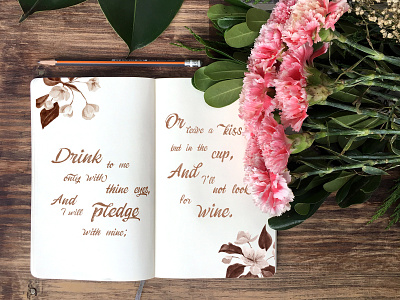 Drink to me
only with
thine eyes,
And
I will pledge
with mine;
Or leave a kiss
but in the cup,
And I'll
not look
for wine.